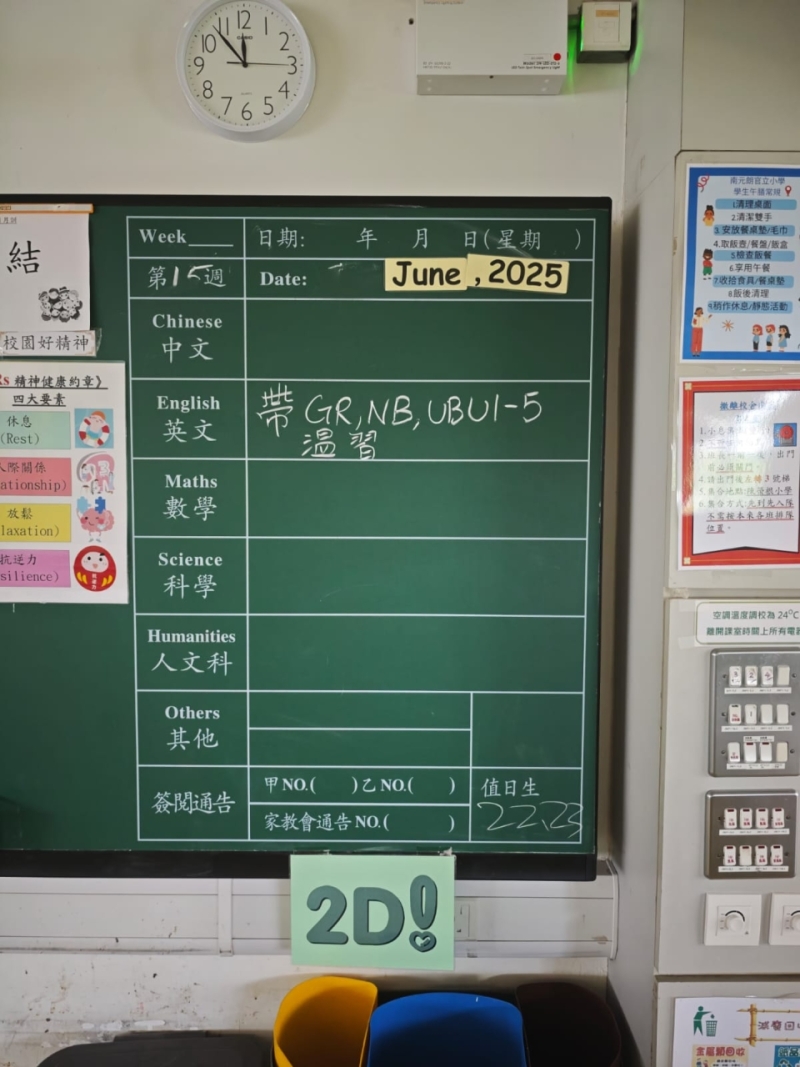 12
1
2
3
4
5
6
7
8
9
10
結
校園好精神
精神健康約章)
四大要素
休息
(Rest)
人際關係
放鬆
抗逆力
Week____ 日期: 年 月 日(星期 )
第15週 Date: June , 2025
Chinese
中文
English
英文
帶 GR, NB, UBU1-5
溫習
Maths
數學
Science
科學
Humanities
人文科
Others
其他
簽閱通告
甲NO.( )乙NO.( )
家教會通告NO.( )
值日生
22、23
2D!
南元朗官立小學
學生午膳常規
1.清理桌面
2.清潔雙手
3.安放餐桌墊/毛巾
4.取飯壺/餐盤/飯盒
5.檢查飯餐
6.享用午餐
7.收拾食具/餐桌墊
8.飯後清理
9.稍作休息/靜態活動
空調溫度調校為 24°C
離開課室時關上所有電